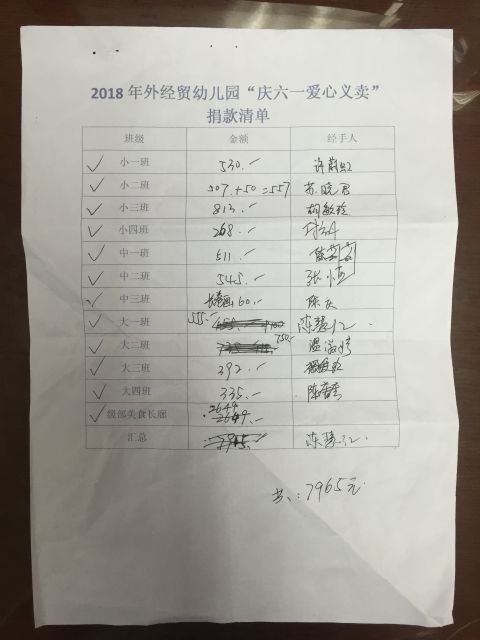 2018 年外经贸幼儿园“庆六一爱心义卖”
捐款清单
班级 金额 经手人
小一班 530.-
小二班 507.+50=557 苏晓君
小三班 813.- 胡敏玲
小四班 268.-
中一班 511.-
中二班 545.-
中三班 60.- 陈
大一班 555.- 陈慧
大二班 750.- 温
大三班 392.-
大四班 335.- 陈
级部美食长廊 2649
汇总 陈慧
共:7965元